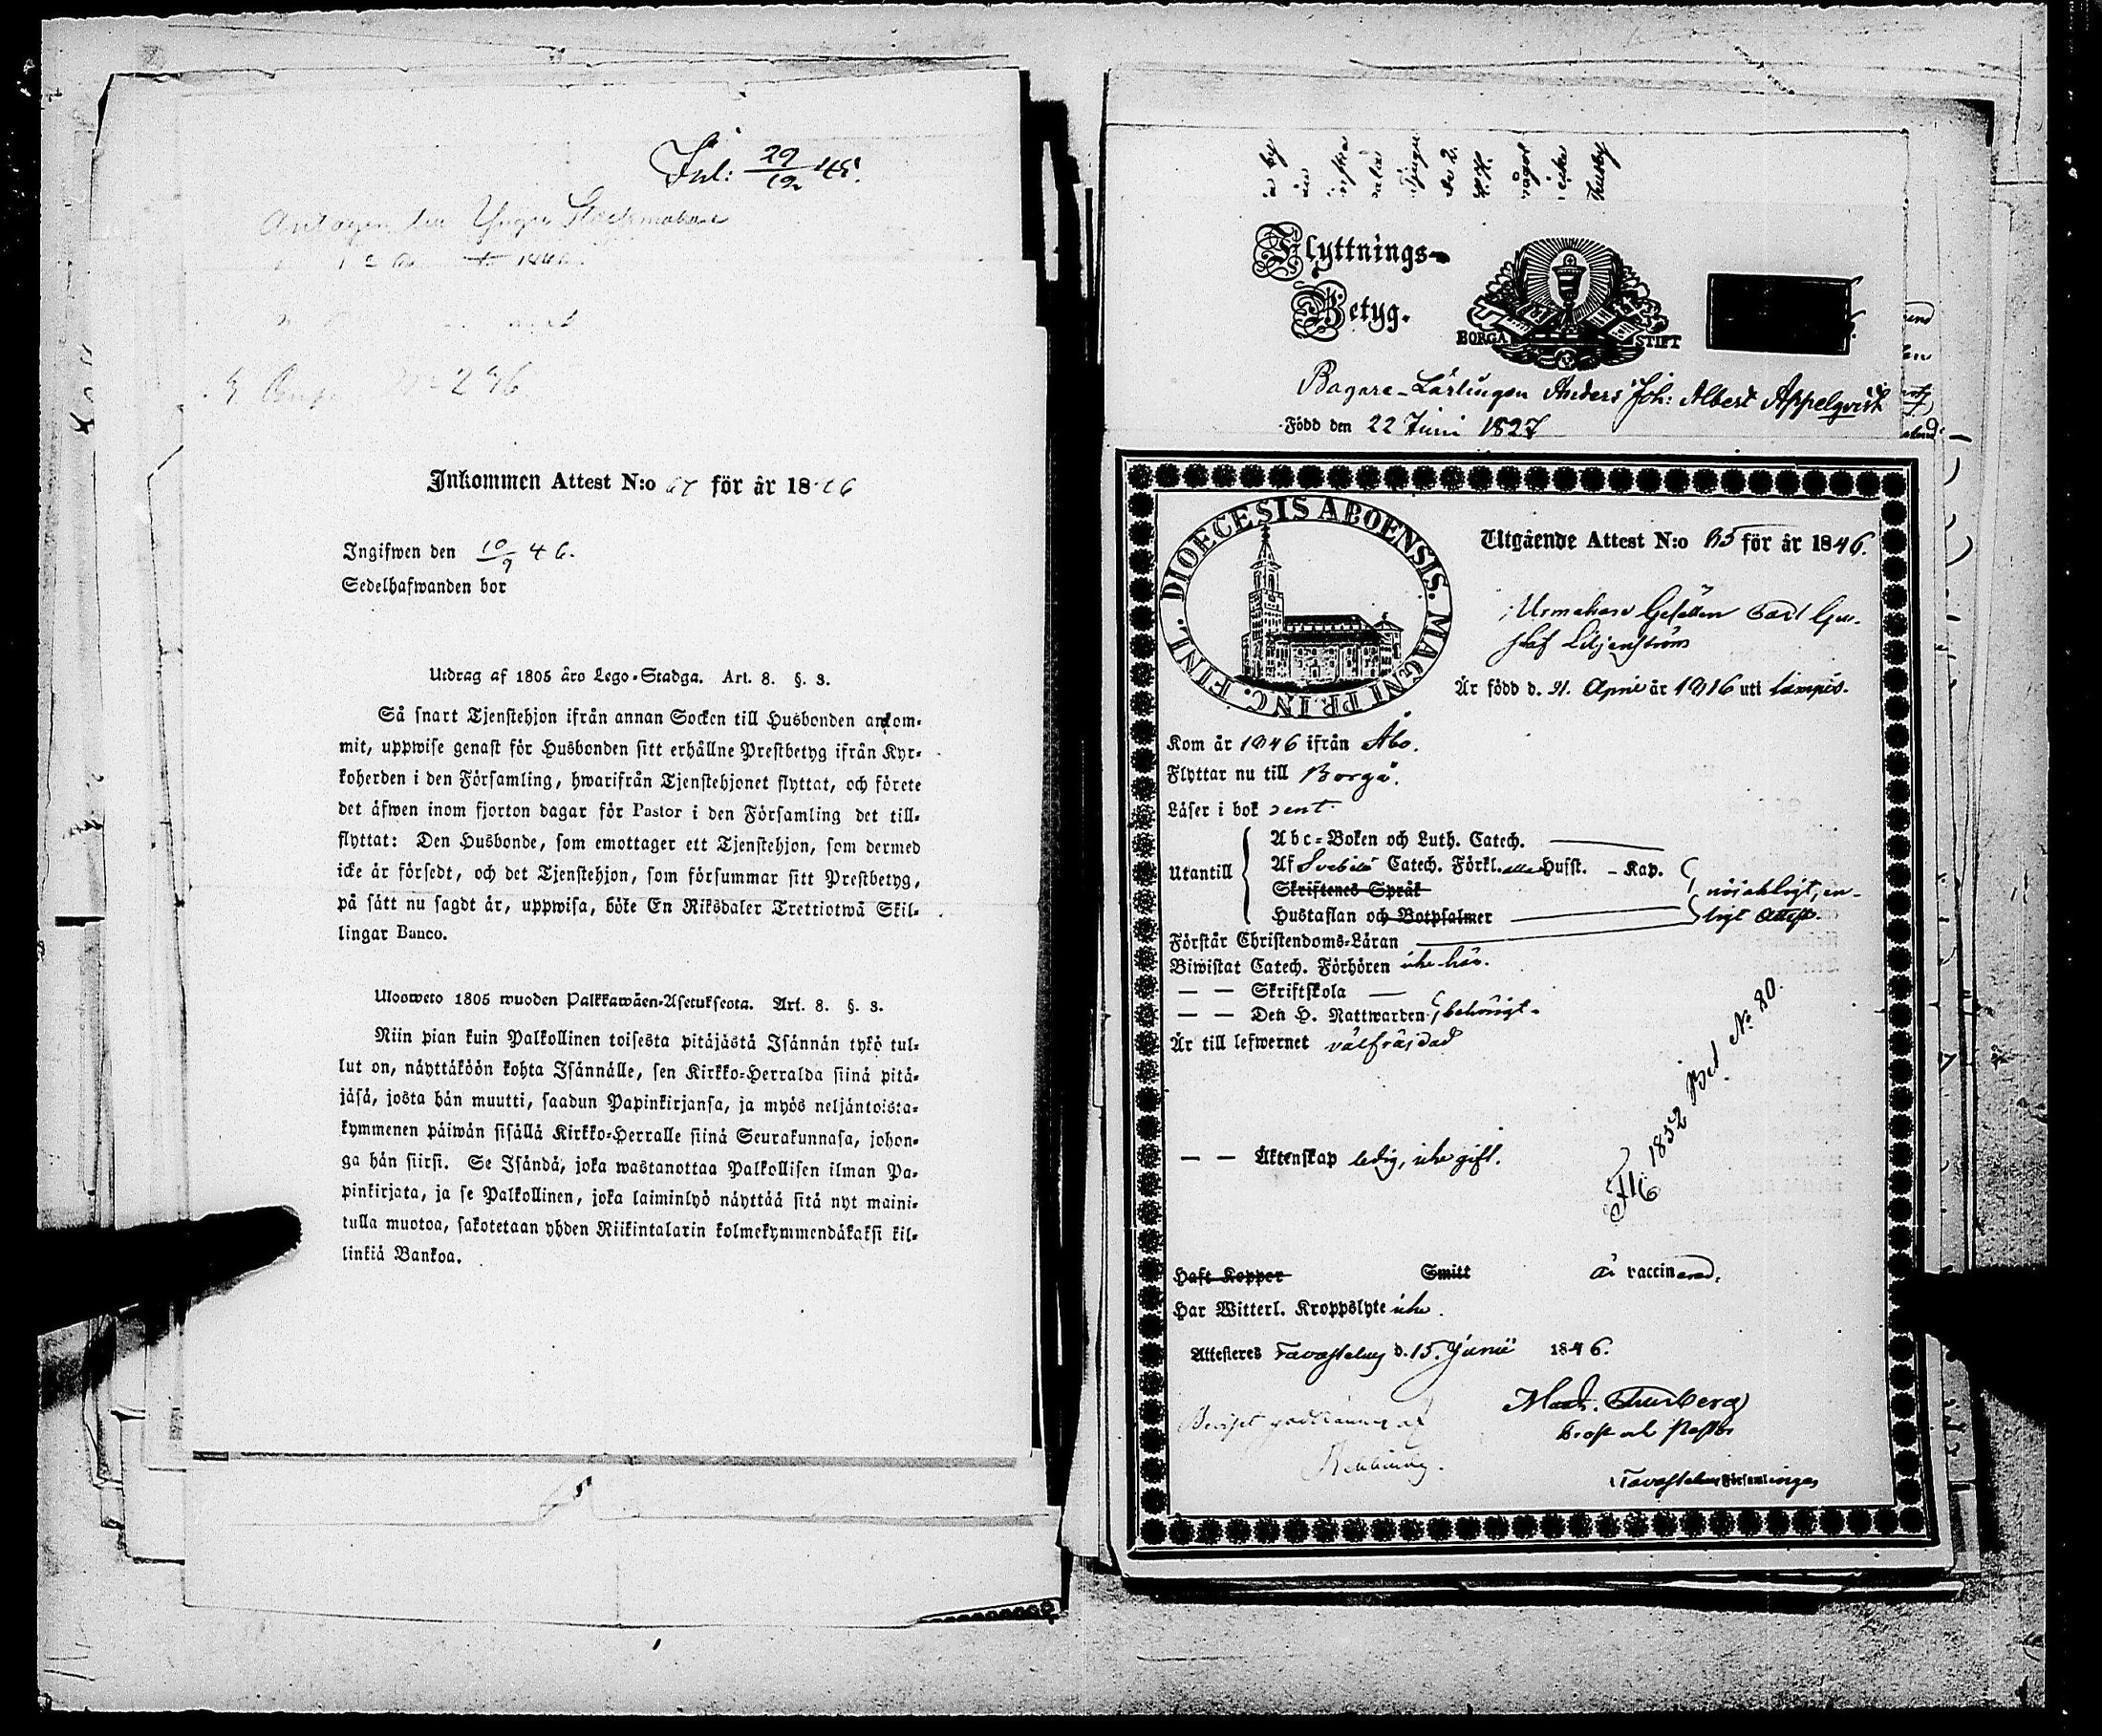 Inl: 29/12 45.
Antagen
1846.
246
Inkommen Attest N:o 67 för år 1846
Ingifwen den 10/9 46.
Sedelhafwanden bor
Utdrag af 1805 års Lego-Stadga. Art. 8. §. 3.
Så snart Tjenstehjon ifrån annan Socken till Husbonden ankom-
mit, uppwise genast för Husbonden sitt erhållne Prestbetyg ifrån Kyr-
koherden i den Församling, hwarifrån Tjenstehjonet flyttat, och förete
det äfwen inom fjorton dagar för Pastor i den Församling det till-
flyttat: Den Husbonde, som emottager ett Tjenstehjon, som dermed
icke är försedt, och det Tjenstehjon, som försummar sitt Prestbetyg,
på sätt nu sagdt är, uppwisa, böte En Riksdaler Trettiotwå Skil-
lingar Banco.
Ulosweto 1805 wuoden Palkkawäen-Asetuksesta. Art. 8. §. 3.
Niin pian kuin Palkollinen toisesta pitäjästä Isännän tykö tul-
lut on, näyttäköön kohta Isännälle, sen Kirkko-Herralda siinä pitä-
jäsä, josta hän muutti, saadun Papinkirjansa, ja myös neljäntoista-
kymmenen päiwän sisällä Kirkko-Herralle siinä Seurakunnasa, johon-
ga hän siirsi. Se Isändä, joka wastanottaa Palkollisen ilman Pa-
pinkirjata, ja se Palkollinen, joka laiminlyö näyttää sitä nyt maini-
tulla muotoa, sakotetaan yhden Riikintalarin kolmekymmendäkaksi kil-
linkiä Bankoa.
Flyttnings-
Betyg.
BORGÅ STIFT
Bagare-Lärlingen Anders Joh: Albert Appelqvist
Född den 22 Juni 1827
DIOECESIS ABOENSIS. MAGNI PRINC. FINL.
Utgående Attest N:o 65 för år 1846.
Urmakare Gesällen Carl Gu-
staf Liljenström
Är född d. 21. April år 1816 uti Lampis.
Kom år 1846 ifrån Åbo.
Flyttar nu till Borgå.
Läser i bok rent.
Utantill
Abc-Boken och Luth. Catech.
Af Svebilii Catech. Förkl. alla Husst. - Kap.
Skriftenes Språk
Hustaflan och Botpsalmer
nöjakligt, en-
ligt Attest.
Förstår Christendoms-Läran
Biwistat Catech. Förhören icke här.
— — Skriftskola —
— — Den H. Nattwarden behörigt.
Är till lefwernet välfräjdad
— — Äktenskap ledig, icke gift.
Flb 1852 Bet N:o 80.
Haft Koppor Smitt är vaccinerad.
Har Witterl. Kroppslyte icke.
Attesteres Tavastehus d. 15. Junii 1846.
Prost och Pastor
i Tavastehus Församlingar